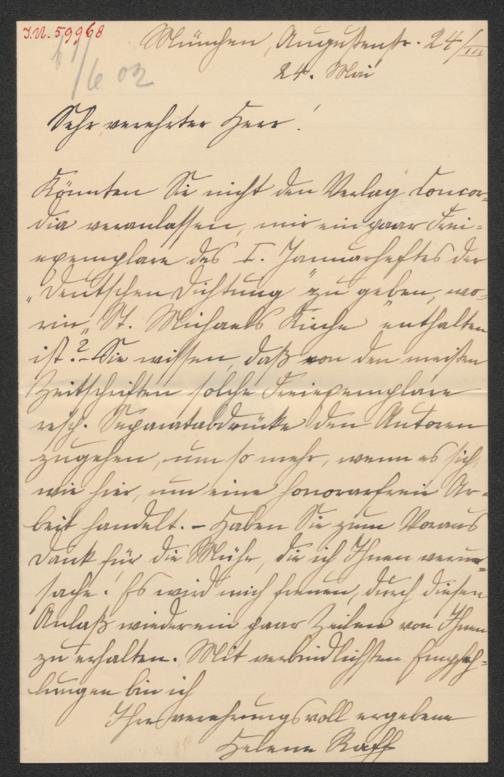 I.N. 59968
München, Augustenstr. 24/III
24. Mai
1/6 02
Sehr verehrter Herr!
Könnten Sie nicht den Verlag Concor-
dia veranlassen, mir ein paar Frei-
exemplare des I. Januarheftes der
„Deutschen Dichtung" zu geben, wo-
rin „St. Michaels Kirche" enthalten
ist? Sie wissen, daß von den meisten
Zeitschriften solche Freiexemplare
resp. Separatabdrücke den Autoren
zugehen, um so mehr, wenn es sich,
wie hier, um eine honorarfreie Ar-
beit handelt. – Haben Sie zum Voraus
Dank für die Mühe, die ich Ihnen verur-
sache! Es wird mich freuen, durch diesen
Anlaß wieder ein paar Zeilen von Ihnen
zu erhalten. Mit verbindlichsten Empfeh-
lungen bin ich
Ihre verehrungsvoll ergebene
Helene Raff